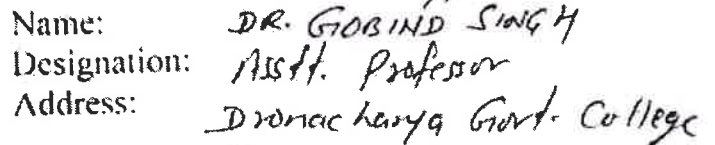 Name: DR. GOBIND SINGH
Designation: Asstt. Professor
Address: Dronacharya Govt. College